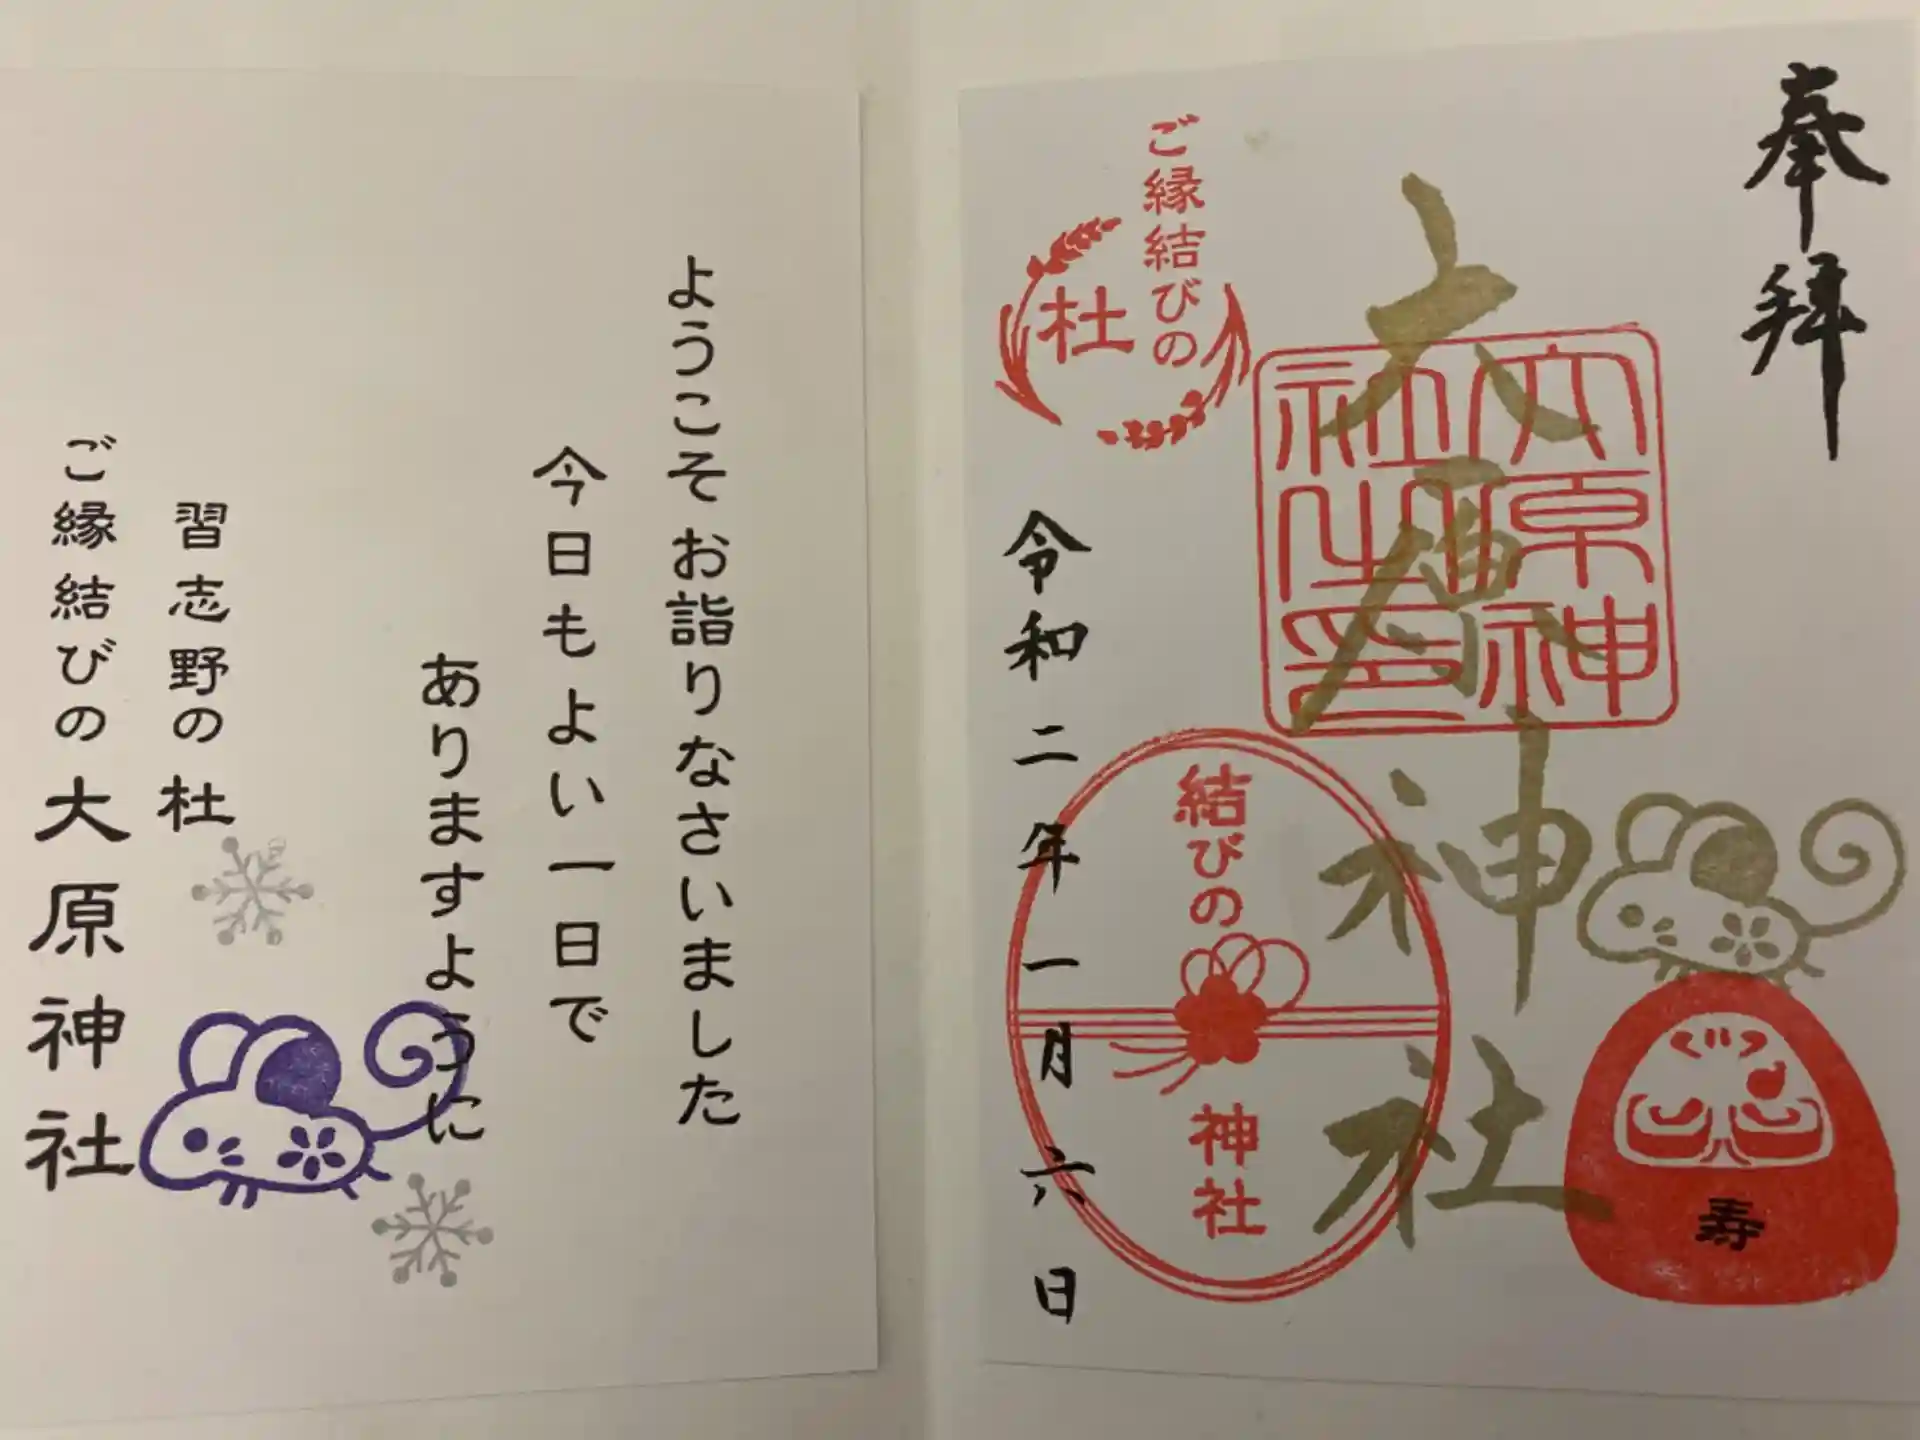 奉拝
大原神社
大原神
社之印
ご縁結びの
杜
結びの
神社
寿
令和二年一月六日
ようこそお詣りなさいました
今日もよい一日で
ありますように
習志野の杜
ご縁結びの大原神社